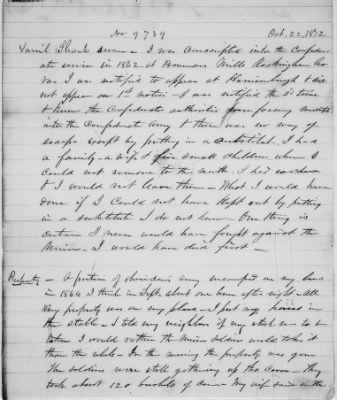 No 9739 Oct. 22, 1872
Saml Shank sworn - I was conscripted into the Confeder
ate service in 1862 at Bowmans Mills Rockingham Co
Va. I was notified to appear at Harrisonburgh & did
not appear on 1st notice - I was notified the 2d time
& knew the Confederate authorities were forcing
into the Confederate Army & there was no way of
escape except by putting in a substitute. I had
a family - a wife & five small children whom I
could not remove to the north. I had no show
& I would not leave them - What I would have
done if I could not have kept out by putting
in a substitute I do not know. One thing is
certain I never would have fought against the
Union - I would have died first -
Property - A portion of Sheridans army encamped on my land
in 1864 I think in Sept. about one hour after night - All
the property was on my place - I put my horses in
the stable - I told my neighbors if my stock was to be
taken I would rather the Union soldiers would take it
than the rebels - In the morning the property was gone
The soldiers were still gathering up the corn - they
took about 120 bushels of corn - My wife said in the